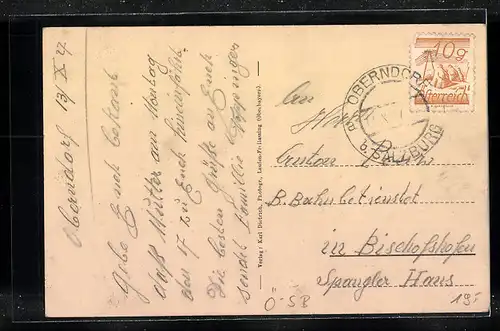 Oberndorf 13/X 27
Gebe Euch bekannt
daß Mutter am Montag
den 17 zu Euch hineinfährt.
Die besten Grüße an Euch
sendet Familie
Verlag: Karl Dietrich, Photogr., Laufen-Freilassing (Oberbayern).
10g
Österreich
OBERNDORF
b. SALZBURG
An
Herrn
Anton
B. Bahnbedienstet
in Bischofshofen
Spangler Haus
Ö.SB
19.-